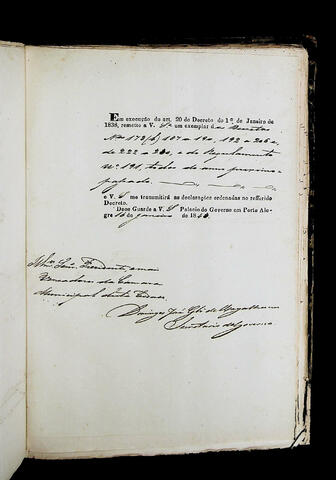 Em execução do art. 20 do Decreto do 1º de Janeiro de
1838, remetto a V. Sª um exemplar dos Decretos
Nos 173(b) 187 a 190, 192 a 206
de 222 a 230, e do Regulamento
Nº 191, todos do anno proximo
passado.
e V. S me transmittirá as declarações ordenadas no referido
Decreto.
Deos Guarde a V. S Palacio do Governo em Porto Ale-
gre 16 de janeiro de 1843.
Snr. Presidente e mais
Vereadores da Camara
Municipal desta Cidade
Domingos José Glz de Magalhaens
Secretario do Governo